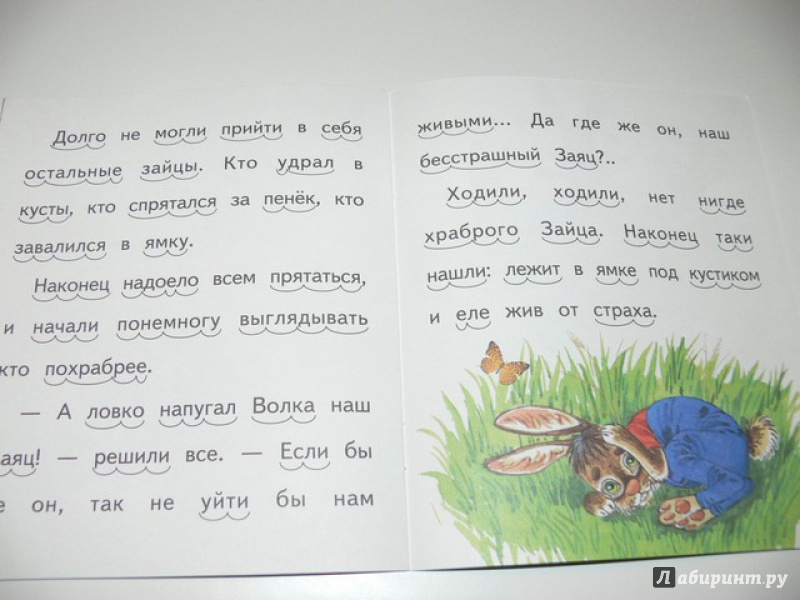 Долго не могли прийти в себя
остальные зайцы. Кто удрал в
кусты, кто спрятался за пенёк, кто
завалился в ямку.
Наконец надоело всем прятаться,
и начали понемногу выглядывать
кто похрабрее.
— А ловко напугал Волка наш
— решили все. — Если бы
он, так не уйти бы нам
живыми... Да где же он, наш
бесстрашный Заяц?..
Ходили, ходили, нет нигде
храброго Зайца. Наконец таки
нашли: лежит в ямке под кустиком
и еле жив от страха.
Лабиринт.ру